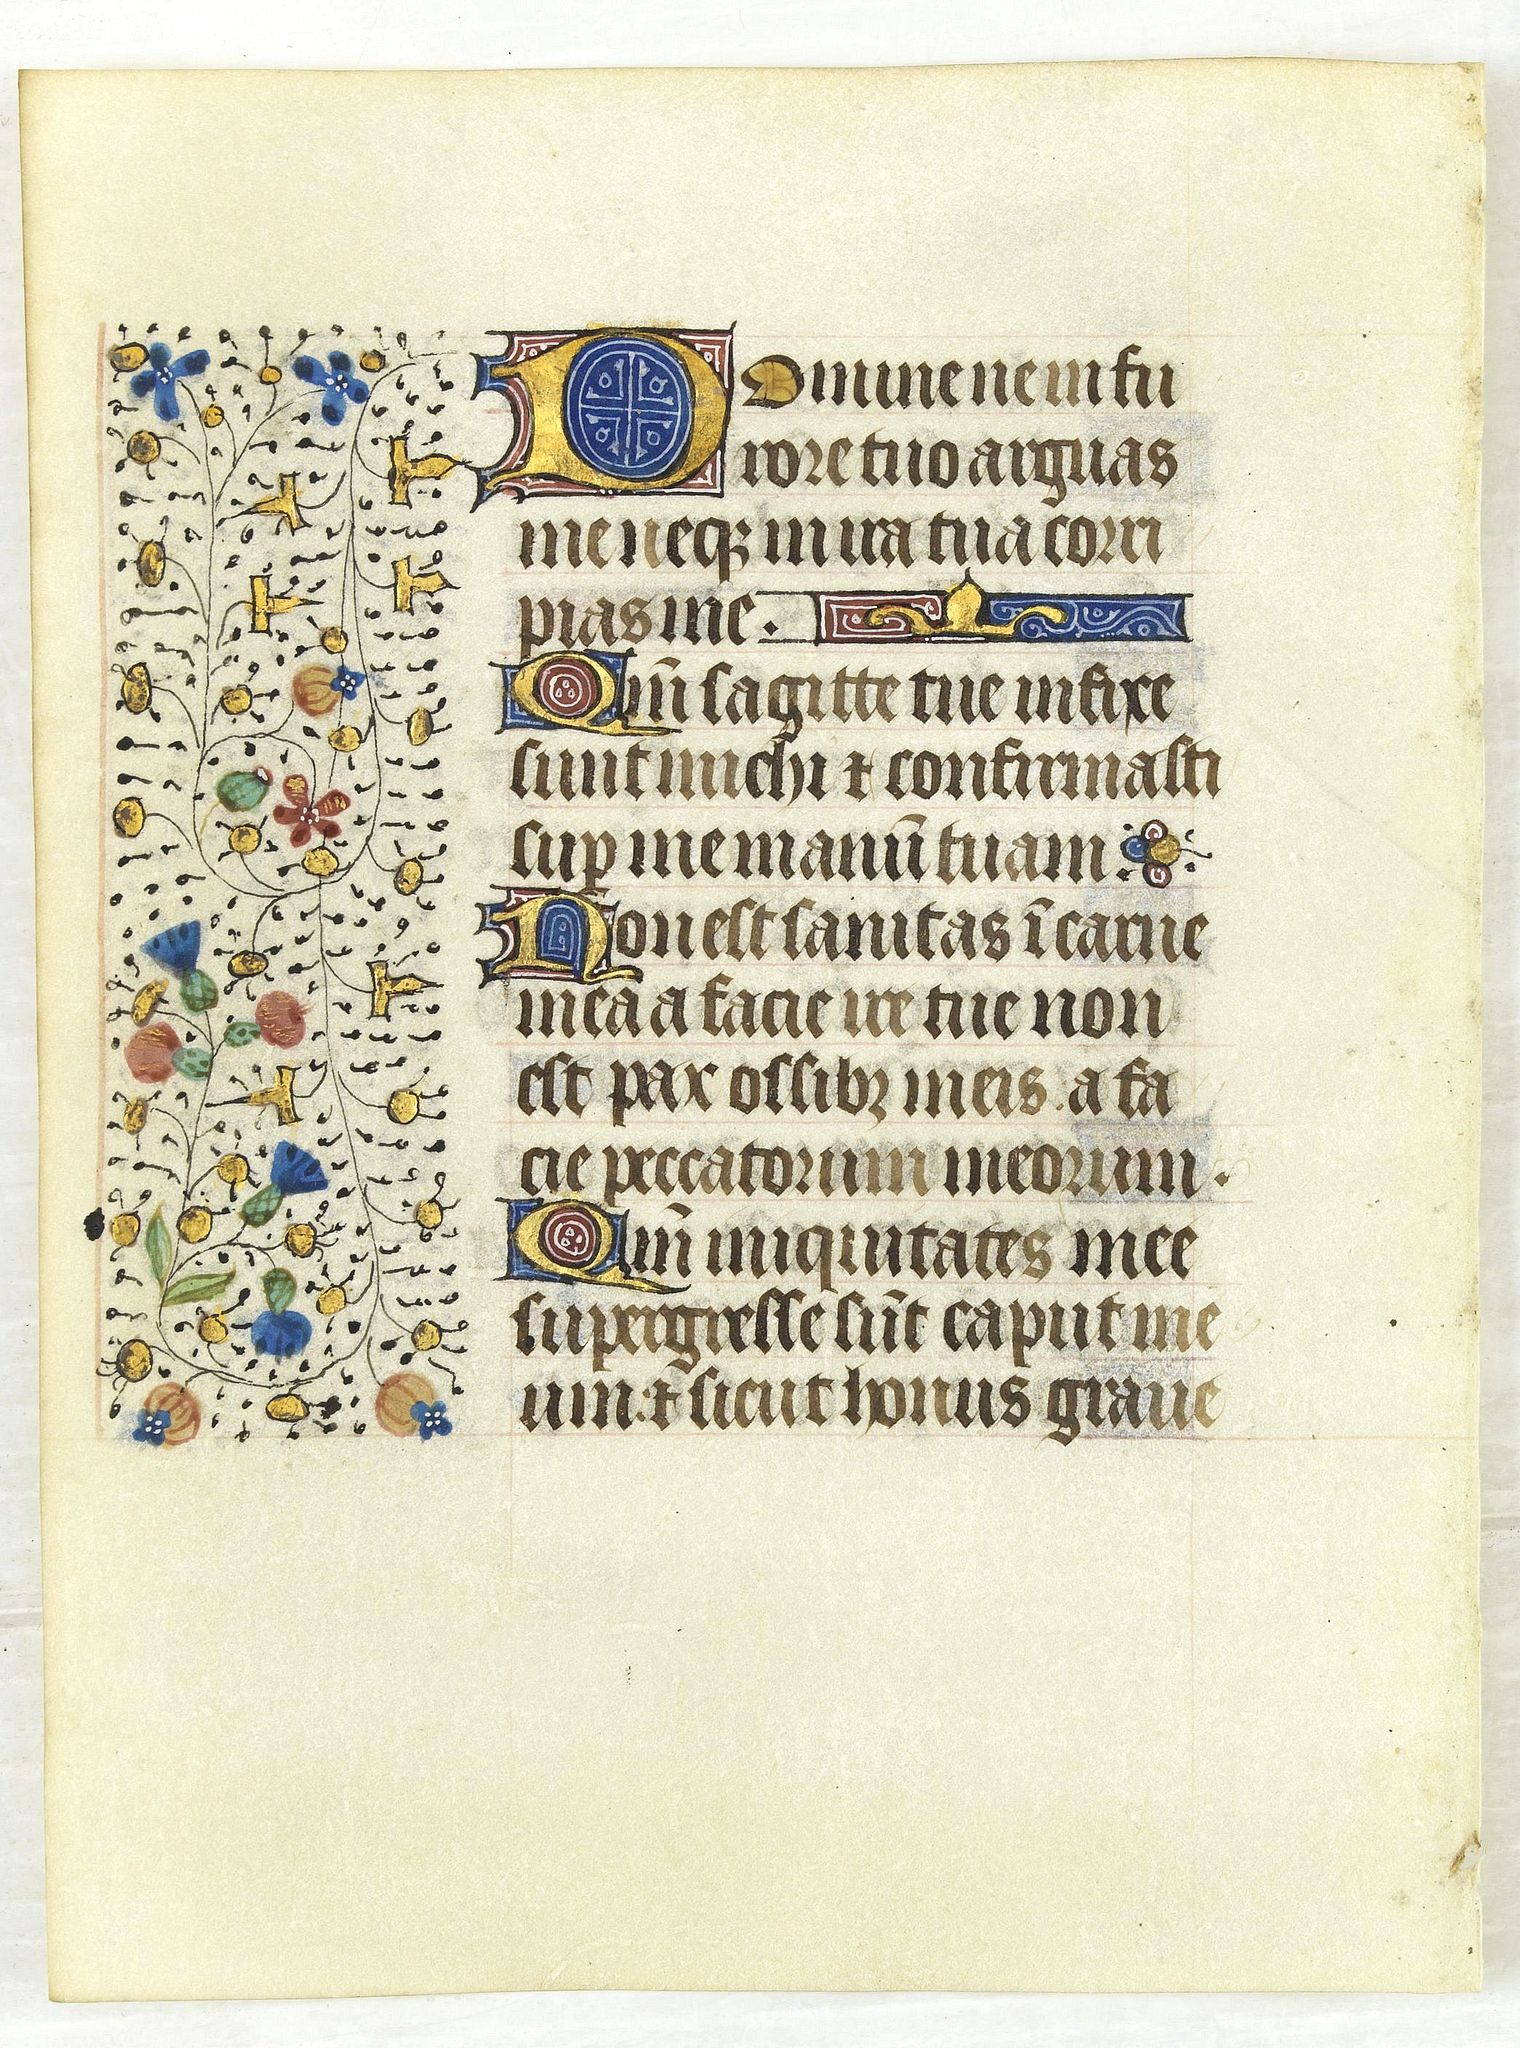 Domine ne in fu
rore tuo arguas
me neqꝫ in ira tua corri
pias me.
Qm̄ sagitte tue infixe
sunt michi ⁊ confirmasti
suꝑ me manū tuam
Non est sanitas ī carne
mea a facie ire tue non
est pax ossibꝫ meis a fa
cie peccatorum meorum.
Qm̄ iniquitates mee
supergresse sūt caput me
um: ⁊ sicut honus graue